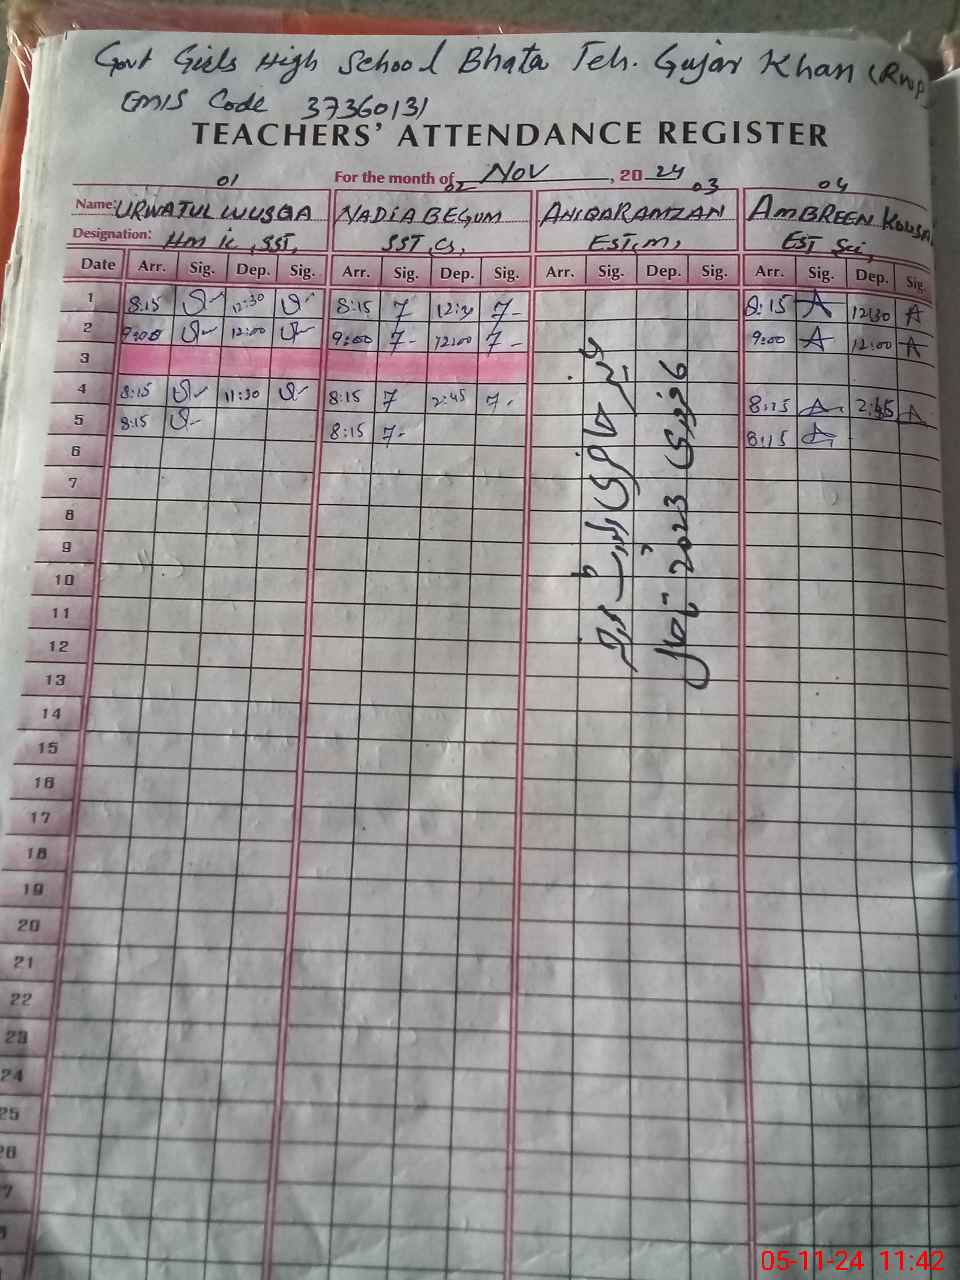 Govt Girls High School Bhata Teh. Gujar Khan (Rwp)
EMIS Code 37360131
TEACHERS' ATTENDANCE REGISTER
For the month of Nov, 2024
01 02 03 04
Name: URWATUL WUSQA NADIA BEGUM ANIQA RAMZAN AMBREEN KOUSAR
Designation: HM ic, SST, SST, CS, EST, M, EST Sci,
Date Arr. Sig. Dep. Sig. Arr. Sig. Dep. Sig. Arr. Sig. Dep. Sig. Arr. Sig. Dep. Sig.
1 8:15 12:30 8:15 12:30 8:15 12:30
2 9:00 12:00 9:00 12:00 9:00 12:00
3
4 8:15 11:30 8:15 2:45 8:15 2:45
5 8:15 8:15 8:15
6
7
8
9
10
11
12
13
14
15
16
17
18
19
20
21
22
23
24
25
26
7
غیر حاضری
2023
05-11-24 11:42